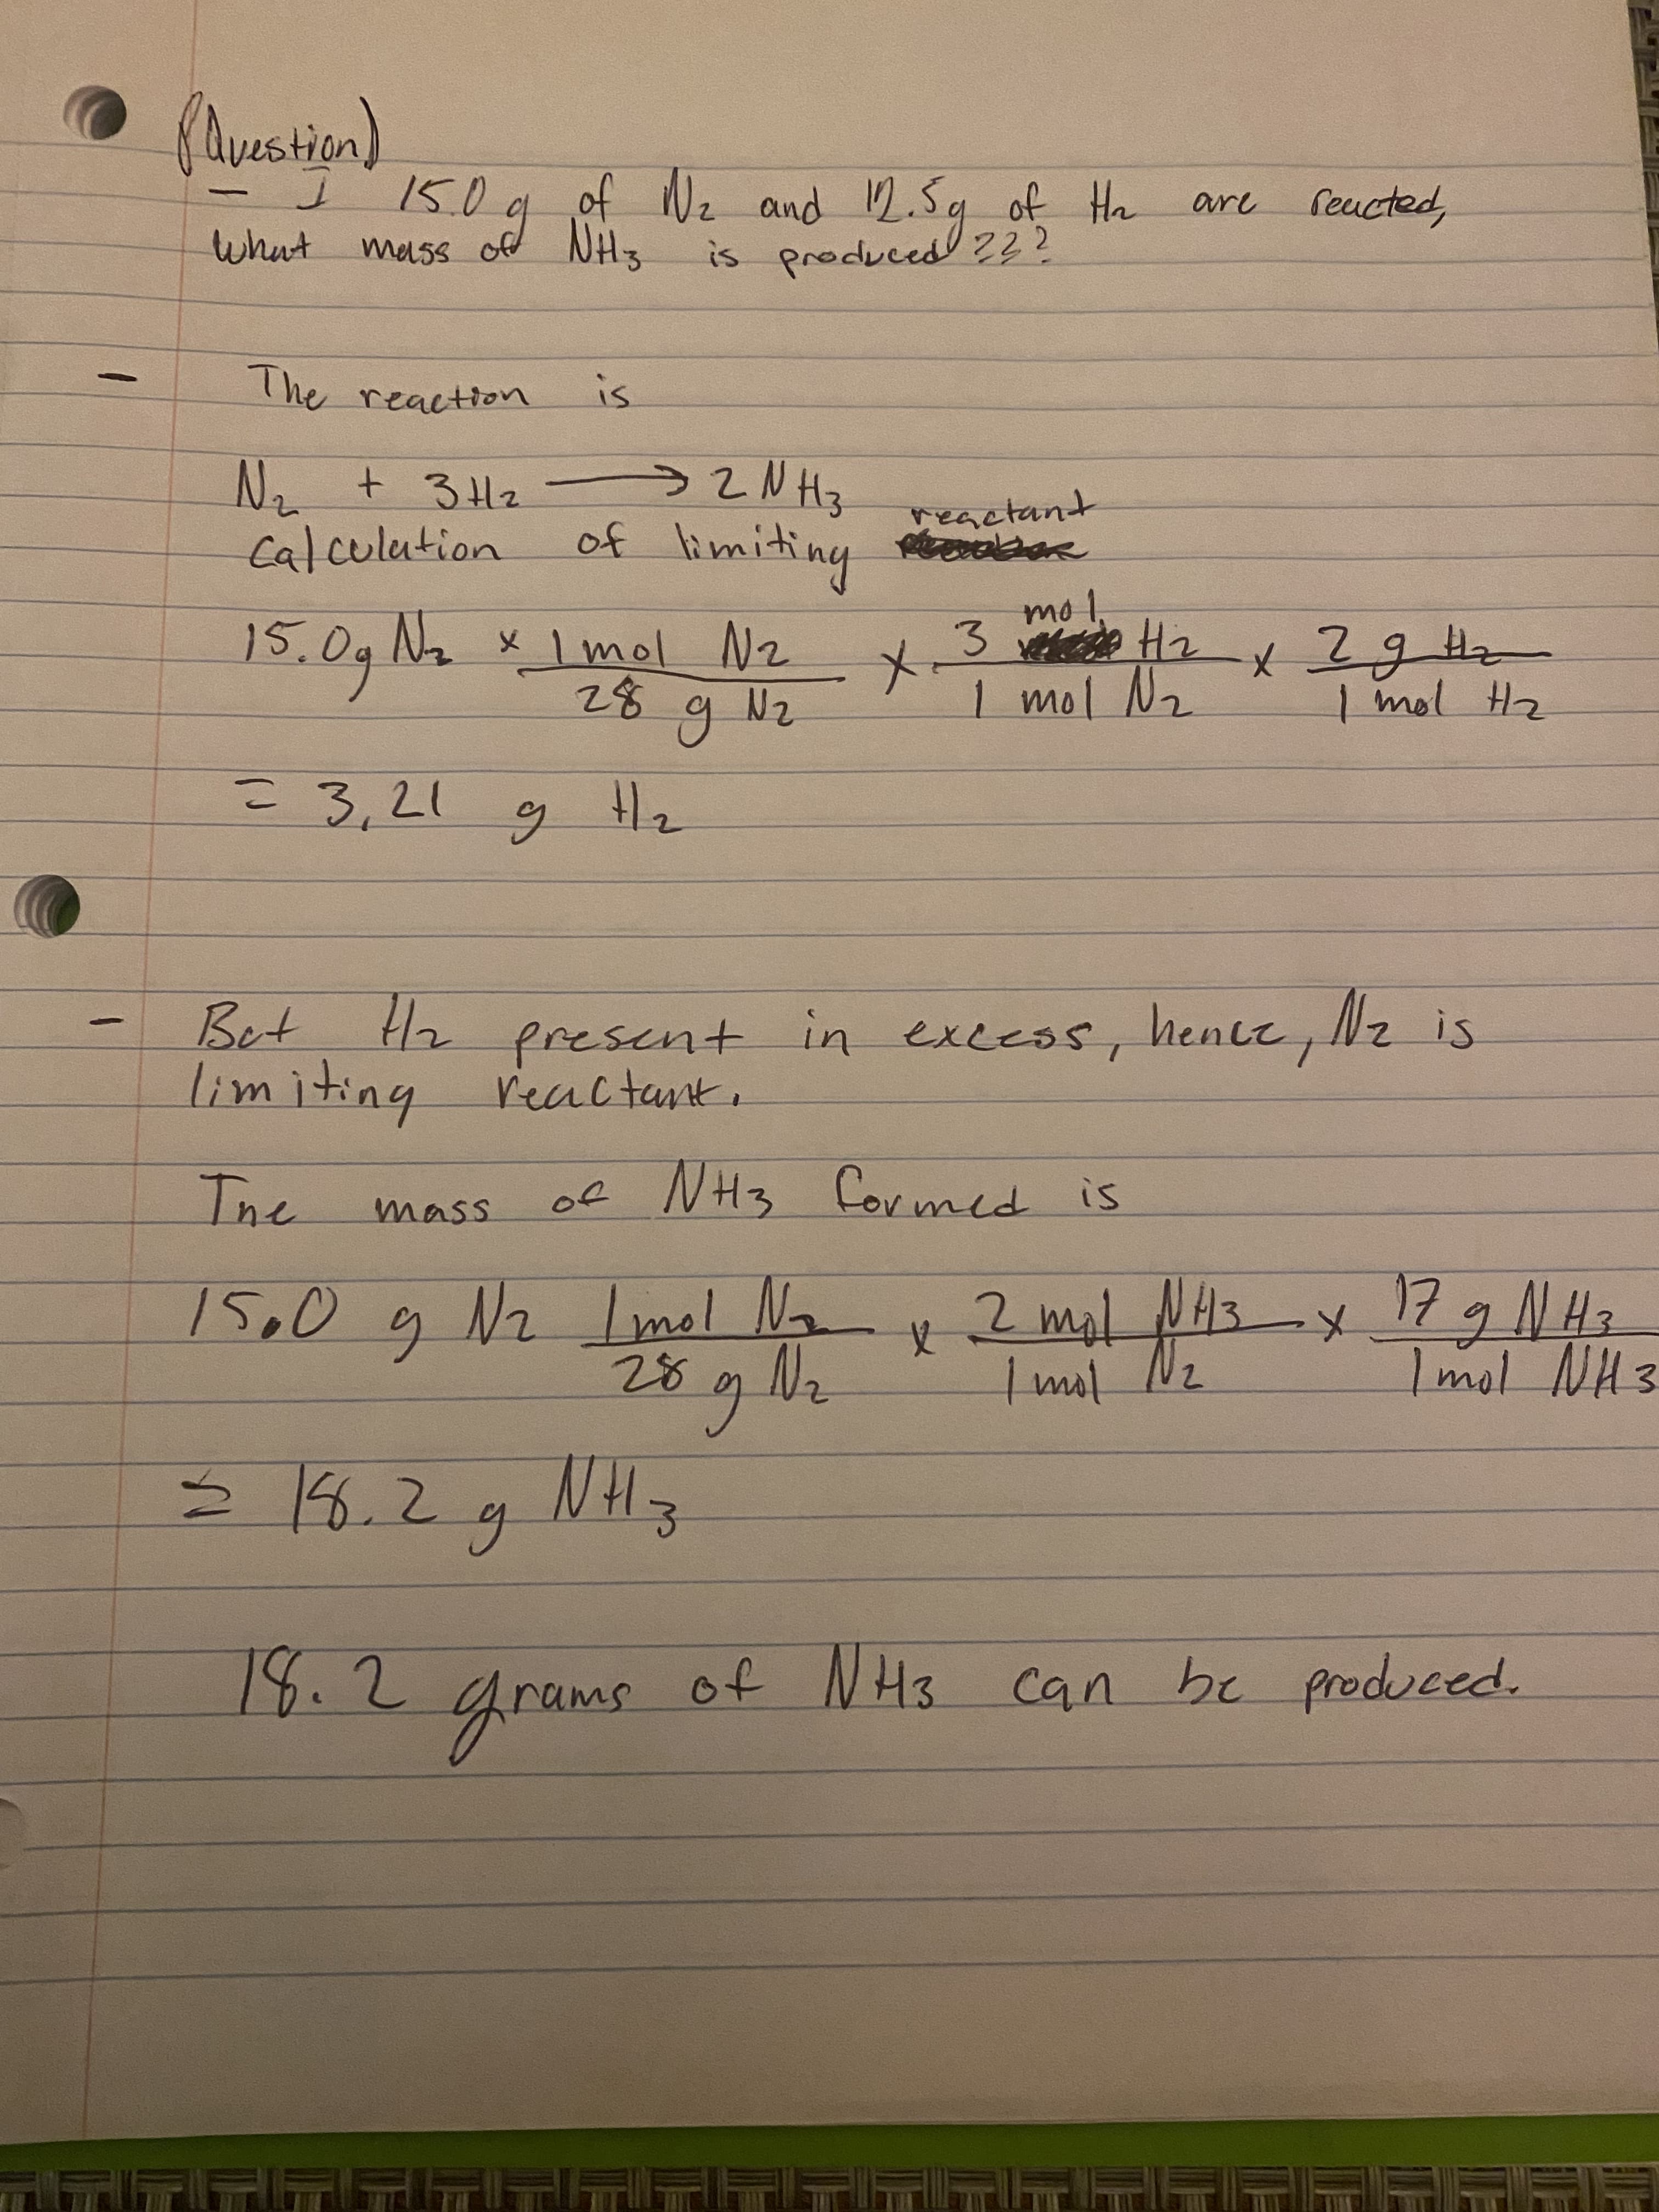 (Question)
- I 15.0 g of N2 and 12.5g of H2 are reacted,
what mass of NH3 is produced???
- The reaction is
N2 + 3H2 → 2NH3
reactant
Calculation of limiting
15.0g N2 × 1 mol N2 / 28 g N2 × 3 mol H2 / 1 mol N2 × 2 g H2 / 1 mol H2
= 3.21 g H2
- But H2 present in excess, hence, N2 is
limiting reactant.
The mass of NH3 formed is
15.0 g N2 1 mol N2 / 28 g N2 × 2 mol NH3 / 1 mol N2 × 17 g NH3 / 1 mol NH3
= 18.2 g NH3
18.2 grams of NH3 can be produced.